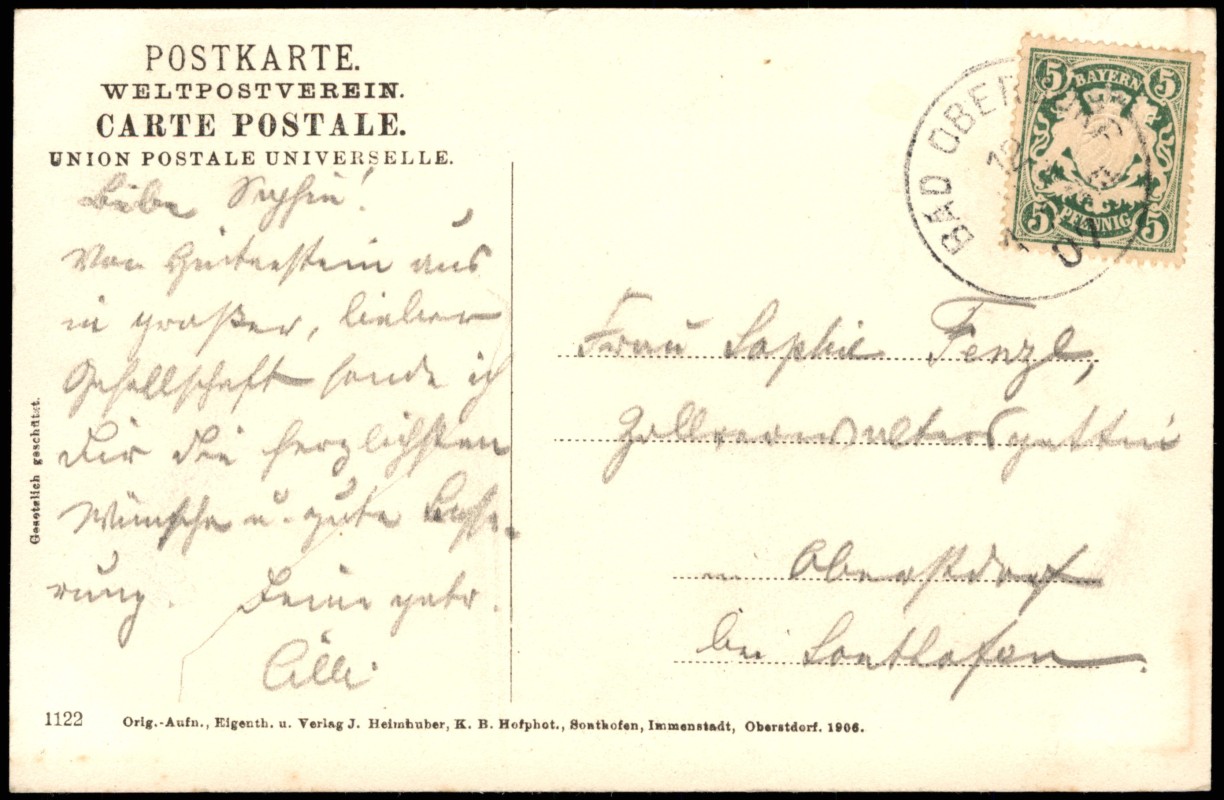 POSTKARTE.
WELTPOSTVEREIN.
CARTE POSTALE.
UNION POSTALE UNIVERSELLE.
Liebe Sophie!
Von Hinterstein aus
in großer, lieber
Gesellschaft sende ich
Dir die herzlichsten
Wünsche u. gute Besse-
rung. Deine getr.
Cilli
Gesetzlich geschützt.
BAD OBERD
07
5 BAYERN 5
5 PFENNIG 5
Frau Sophie Fenzl,
Zollverwaltersgattin
in Oberstdorf
bei Sonthofen.
1122 Orig.-Aufn., Eigenth. u. Verlag J. Heimhuber, K. B. Hofphot., Sonthofen, Immenstadt, Oberstdorf. 1906.